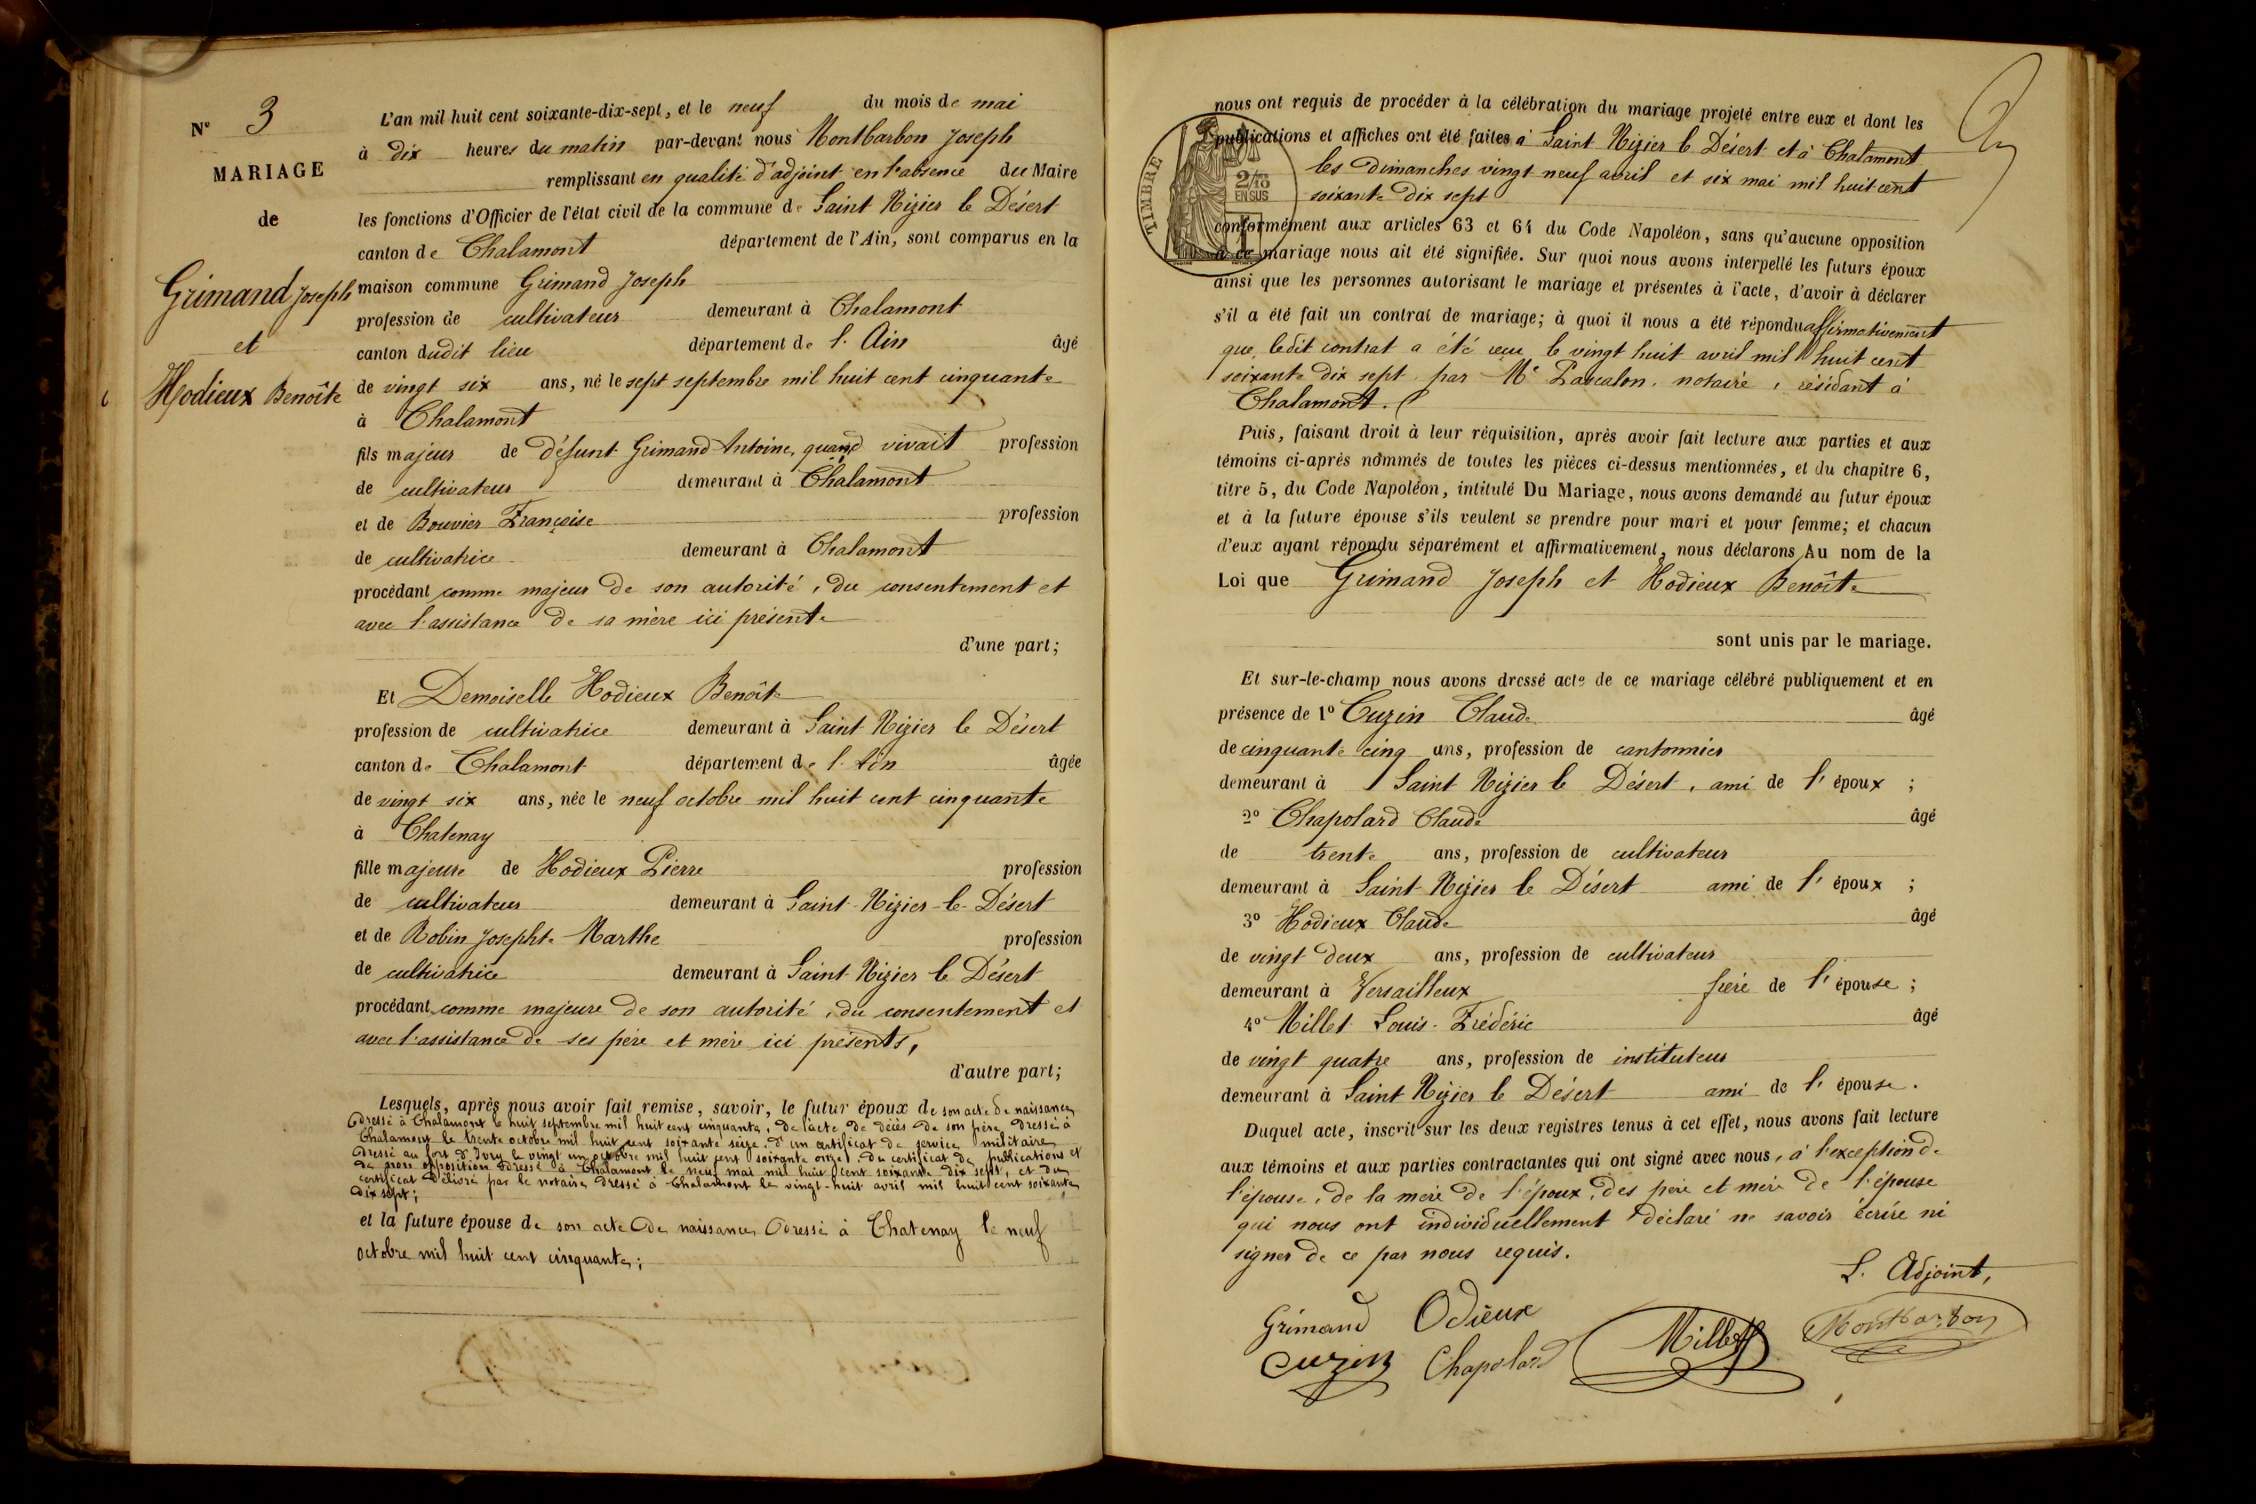 N° 3
MARIAGE
de
Grimand Joseph
et
Hodieux Benoîte
L'an mil huit cent soixante-dix-sept, et le neuf du mois de mai
à dix heures du matin par-devant nous Montbarbon Joseph
remplissant en qualité d'adjoint en l'absence du Maire
les fonctions d'Officier de l'état civil de la commune de Saint Nizier le Désert
canton de Chalamont département de l'Ain, sont comparus en la
maison commune Grimand Joseph
profession de cultivateur demeurant à Chalamont
canton dudit lieu département de l'Ain âgé
de vingt six ans, né le sept septembre mil huit cent cinquante
à Chalamont
fils majeur de défunt Grimand Antoine, quand vivait profession
de cultivateur demeurant à Chalamont
et de Bouvier Françoise profession
de cultivatrice demeurant à Chalamont
procédant comme majeur de son autorité, du consentement et
avec l'assistance de sa mère ici présente
d'une part;
Et Demoiselle Hodieux Benoîte
profession de cultivatrice demeurant à Saint Nizier le Désert
canton de Chalamont département de l'Ain âgée
de vingt six ans, née le neuf octobre mil huit cent cinquante
à Chatenay
fille majeure de Hodieux Pierre profession
de cultivateur demeurant à Saint-Nizier-le-Désert
et de Robin Josephte Marthe profession
de cultivatrice demeurant à Saint Nizier le Désert
procédant comme majeure de son autorité, du consentement et
avec l'assistance de ses père et mère ici présents,
d'autre part;
Lesquels, après nous avoir fait remise, savoir, le futur époux de son acte de naissance
dressé à Chalamont le huit septembre mil huit cent cinquante, de l'acte de décès de son père dressé à
Chalamont le trente octobre mil huit cent soixante seize. d'un certificat de service militaire
dressé au fort d'Ivry le vingt un octobre mil huit cent soixante onze. du certificat de publications et
de non opposition dressé à Chalamont le neuf mai mil huit cent soixante dix sept, et du
certificat délivré par le notaire dressé à Chalamont le vingt-huit avril mil huit cent soixante
dix sept;
et la future épouse de son acte de naissance dressé à Chatenay le neuf
octobre mil huit cent cinquante;
TIMBRE
2/10
EN SUS
nous ont requis de procéder à la célébration du mariage projeté entre eux et dont les
publications et affiches ont été faites à Saint Nizier le Désert et à Chalamont
les dimanches vingt neuf avril et six mai mil huit cent
soixante dix sept
conformément aux articles 63 et 64 du Code Napoléon, sans qu'aucune opposition
à ce mariage nous ait été signifiée. Sur quoi nous avons interpellé les futurs époux
ainsi que les personnes autorisant le mariage et présentes à l'acte, d'avoir à déclarer
s'il a été fait un contrat de mariage; à quoi il nous a été répondu affirmativement
que ledit contrat a été reçu le vingt huit avril mil huit cent
soixante dix sept par Me Pascalon, notaire, résidant à
Chalamont.
Puis, faisant droit à leur réquisition, après avoir fait lecture aux parties et aux
témoins ci-après nommés de toutes les pièces ci-dessus mentionnées, et du chapitre 6,
titre 5, du Code Napoléon, intitulé Du Mariage, nous avons demandé au futur époux
et à la future épouse s'ils veulent se prendre pour mari et pour femme; et chacun
d'eux ayant répondu séparément et affirmativement, nous déclarons Au nom de la
Loi que Grimand Joseph et Hodieux Benoîte
sont unis par le mariage.
Et sur-le-champ nous avons dressé acte de ce mariage célébré publiquement et en
présence de 1° Cuzin Claude âgé
de cinquante cinq ans, profession de cantonnier
demeurant à Saint Nizier le Désert, ami de l'époux ;
2° Chapolard Claude âgé
de trente ans, profession de cultivateur
demeurant à Saint Nizier le Désert ami de l'époux ;
3° Hodieux Claude âgé
de vingt deux ans, profession de cultivateur
demeurant à Versailleux frère de l'épouse ;
4° Millet Louis-Frédéric âgé
de vingt quatre ans, profession de instituteur
demeurant à Saint Nizier le Désert ami de l'épouse.
Duquel acte, inscrit sur les deux registres tenus à cet effet, nous avons fait lecture
aux témoins et aux parties contractantes qui ont signé avec nous, à l'exception de
l'épouse, de la mère de l'époux, des père et mère de l'épouse
qui nous ont individuellement déclaré ne savoir écrire ni
signer de ce par nous requis.
L'Adjoint,
Grimand Odieux Millet Montbarbon
Cuzin Chapolard